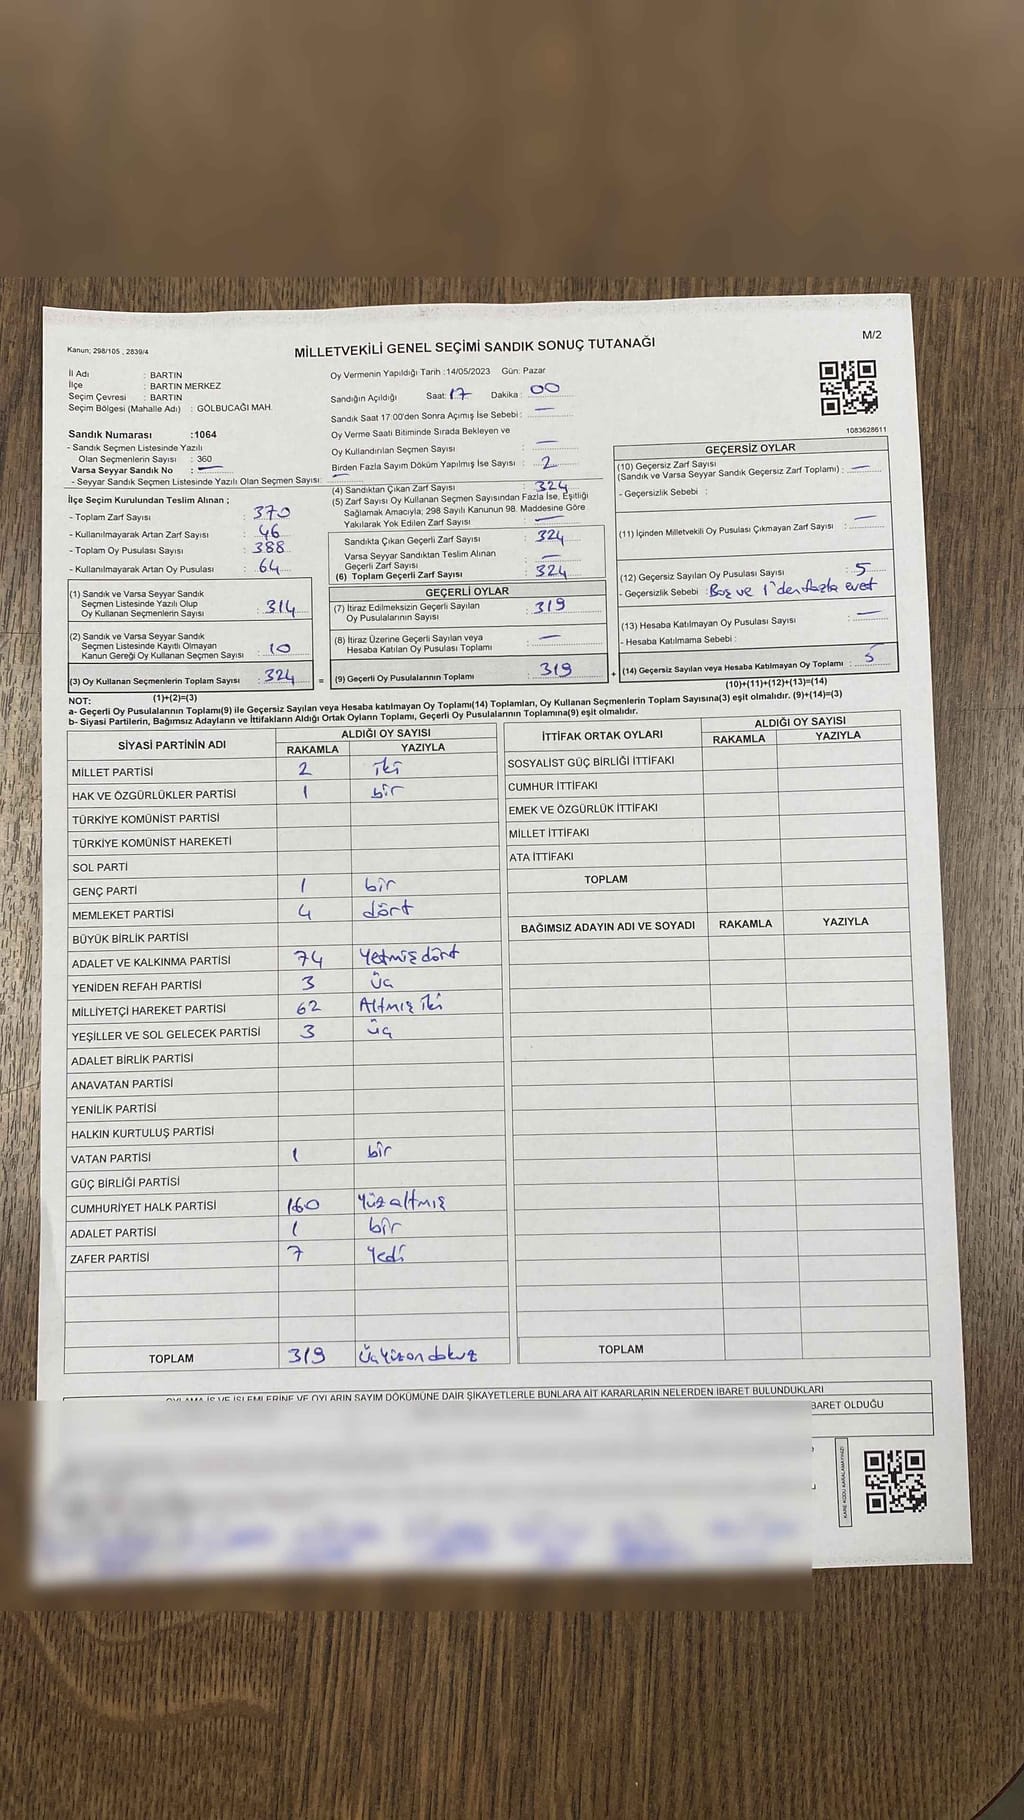 Kanun; 298/105 , 2839/4
MİLLETVEKİLİ GENEL SEÇİMİ SANDIK SONUÇ TUTANAĞI
M/2
İl Adı : BARTIN
İlçe : BARTIN MERKEZ
Seçim Çevresi : BARTIN
Seçim Bölgesi (Mahalle Adı) : GÖLBUCAĞI MAH.
Sandık Numarası :1064
- Sandık Seçmen Listesinde Yazılı
Olan Seçmenlerin Sayısı : 360
Varsa Seyyar Sandık No : —
- Seyyar Sandık Seçmen Listesinde Yazılı Olan Seçmen Sayısı: —
İlçe Seçim Kurulundan Teslim Alınan ;
- Toplam Zarf Sayısı : 370
- Kullanılmayarak Artan Zarf Sayısı : 46
- Toplam Oy Pusulası Sayısı : 388
- Kullanılmayarak Artan Oy Pusulası : 64
(1) Sandık ve Varsa Seyyar Sandık
Seçmen Listesinde Yazılı Olup
Oy Kullanan Seçmenlerin Sayısı : 314
(2) Sandık ve Varsa Seyyar Sandık
Seçmen Listesinde Kayıtlı Olmayan
Kanun Gereği Oy Kullanan Seçmen Sayısı : 10
(3) Oy Kullanan Seçmenlerin Toplam Sayısı : 324
(1)+(2)=(3)
Oy Vermenin Yapıldığı Tarih :14/05/2023 Gün: Pazar
Sandığın Açıldığı Saat: 17 Dakika : 00
Sandık Saat 17.00'den Sonra Açılmış İse Sebebi : —
Oy Verme Saati Bitiminde Sırada Bekleyen ve
Oy Kullandırılan Seçmen Sayısı : —
Birden Fazla Sayım Döküm Yapılmış İse Sayısı : 2
(4) Sandıktan Çıkan Zarf Sayısı : 324
(5) Zarf Sayısı Oy Kullanan Seçmen Sayısından Fazla İse, Eşitliği
Sağlamak Amacıyla; 298 Sayılı Kanunun 98. Maddesine Göre
Yakılarak Yok Edilen Zarf Sayısı : —
Sandıkta Çıkan Geçerli Zarf Sayısı : 324
Varsa Seyyar Sandıktan Teslim Alınan
Geçerli Zarf Sayısı : —
(6) Toplam Geçerli Zarf Sayısı : 324
GEÇERLİ OYLAR
(7) İtiraz Edilmeksizin Geçerli Sayılan
Oy Pusulalarının Sayısı : 319
(8) İtiraz Üzerine Geçerli Sayılan veya
Hesaba Katılan Oy Pusulası Toplamı : —
= (9) Geçerli Oy Pusulalarının Toplamı : 319
1083628611
GEÇERSİZ OYLAR
(10) Geçersiz Zarf Sayısı
(Sandık ve Varsa Seyyar Sandık Geçersiz Zarf Toplamı) : —
- Geçersizlik Sebebi :
(11) İçinden Milletvekili Oy Pusulası Çıkmayan Zarf Sayısı : —
(12) Geçersiz Sayılan Oy Pusulası Sayısı : 5
- Geçersizlik Sebebi : Boş ve 1'den fazla evet
(13) Hesaba Katılmayan Oy Pusulası Sayısı : —
- Hesaba Katılmama Sebebi :
+ (14) Geçersiz Sayılan veya Hesaba Katılmayan Oy Toplamı : 5
(10)+(11)+(12)+(13)=(14)
NOT:
a- Geçerli Oy Pusulalarının Toplamı(9) ile Geçersiz Sayılan veya Hesaba katılmayan Oy Toplamı(14) Toplamları, Oy Kullanan Seçmenlerin Toplam Sayısına(3) eşit olmalıdır. (9)+(14)=(3)
b- Siyasi Partilerin, Bağımsız Adayların ve İttifakların Aldığı Ortak Oyların Toplamı, Geçerli Oy Pusulalarının Toplamına(9) eşit olmalıdır.
SİYASİ PARTİNİN ADI ALDIĞI OY SAYISI
RAKAMLA YAZIYLA
MİLLET PARTİSİ 2 iki
HAK VE ÖZGÜRLÜKLER PARTİSİ 1 bir
TÜRKİYE KOMÜNİST PARTİSİ
TÜRKİYE KOMÜNİST HAREKETİ
SOL PARTİ
GENÇ PARTİ 1 bir
MEMLEKET PARTİSİ 4 dört
BÜYÜK BİRLİK PARTİSİ
ADALET VE KALKINMA PARTİSİ 74 Yetmiş dört
YENİDEN REFAH PARTİSİ 3 üç
MİLLİYETÇİ HAREKET PARTİSİ 62 Altmış iki
YEŞİLLER VE SOL GELECEK PARTİSİ 3 üç
ADALET BİRLİK PARTİSİ
ANAVATAN PARTİSİ
YENİLİK PARTİSİ
HALKIN KURTULUŞ PARTİSİ
VATAN PARTİSİ 1 bir
GÜÇ BİRLİĞİ PARTİSİ
CUMHURİYET HALK PARTİSİ 160 Yüz altmış
ADALET PARTİSİ 1 bir
ZAFER PARTİSİ 7 Yedi
TOPLAM 319 Üçyüzondokuz
İTTİFAK ORTAK OYLARI ALDIĞI OY SAYISI
RAKAMLA YAZIYLA
SOSYALİST GÜÇ BİRLİĞİ İTTİFAKI
CUMHUR İTTİFAKI
EMEK VE ÖZGÜRLÜK İTTİFAKI
MİLLET İTTİFAKI
ATA İTTİFAKI
TOPLAM
BAĞIMSIZ ADAYIN ADI VE SOYADI RAKAMLA YAZIYLA
TOPLAM
OYLAMA İŞ VE İŞLEMLERİNE VE OYLARIN SAYIM DÖKÜMÜNE DAİR ŞİKAYETLERLE BUNLARA AİT KARARLARIN NELERDEN İBARET BULUNDUKLARI
BARET OLDUĞU
KARE KODU KARALAMAYINIZ!